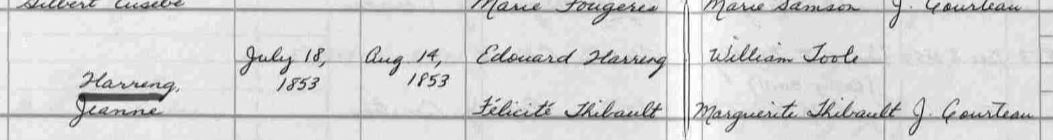 Gilbert Eusèbe Marie Fougeres Marie Samson J. Courteau
July 18, Aug 14, Edouard Harreng William Toole
Harreng, 1853 1853
Jeanne Félicité Thibault Marguerite Thibault J. Courteau